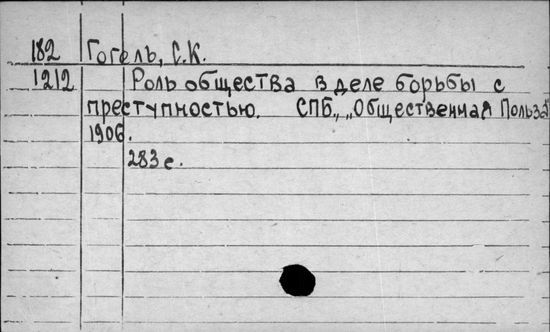 182 Гогель, С.К.
1212 Роль общества в деле борьбы с
преступностью. СПБ., „Общественная Польза"
1906.
283 с.